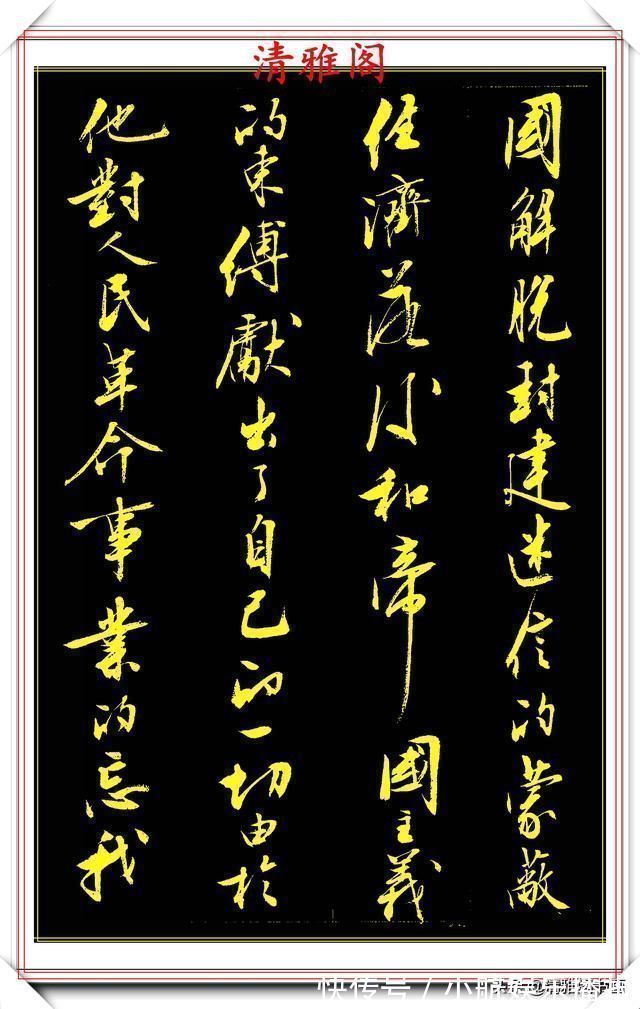 清雅阁
國解脱封建迷信的蒙蔽
经濟落後和帝國主義
的束縛獻出了自己的一切由於
他對人民革命事業的忘我
快传号/小鹏娱乐播